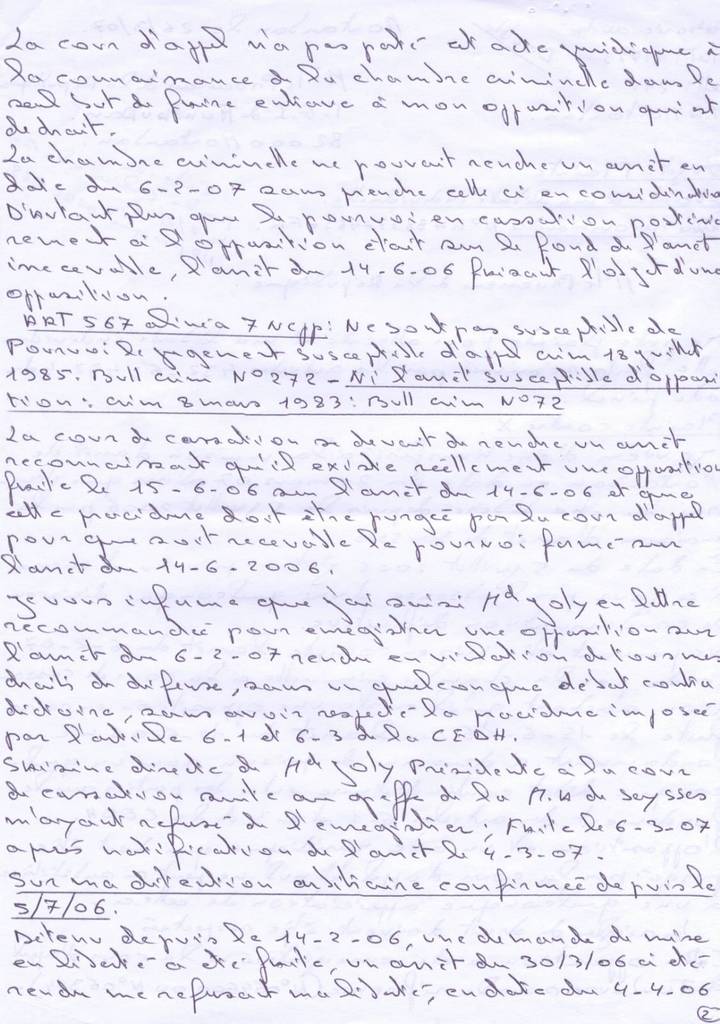 La cour d'appel n'a pas porté cet acte juridique à
la connaissance de la chambre criminelle dans le
seul but de faire entrave à mon opposition qui est
de droit.
La chambre criminelle ne pouvait rendre un arrêt en
date du 6-2-07 sans prendre celle ci en considération
D'autant plus que le pourvoi en cassation postérieu
rement à l'opposition était sur le fond de l'arrêt
irrecevable, l'arrêt du 14-6-06 faisant l'objet d'une
opposition.
ART 567 alinéa 7 Ncpp: Ne sont pas susceptible de
Pourvoi le jugement susceptible d'appel crim 18 juillet
1985. Bull crim N°272 - Ni l'arrêt susceptible d'opposi
tion: crim 8 mars 1983: Bull crim N°72
La cour de cassation se devait de rendre un arrêt
reconnaissant qu'il existe réellement une opposition
faite le 15-6-06 sur l'arrêt du 14-6-06 et que
cette procédure doit être purgée par la cour d'appel
pour que soit recevable le pourvoi formé sur
l'arrêt du 14-6-2006.
Je vous informe que j'ai saisi Md Joly en lettre
recommandée pour enregistrer une opposition sur
l'arrêt du 6-2-07 rendu en violation de tous mes
droits de défense, sans un quelconque débat contra
dictoire, sans avoir respecté la procédure imposée
par l'article 6-1 et 6-3 de la CEDH.
Saisine directe de Md Joly Présidente à la cour
de cassation suite au greffe de la M.A de Seysses
m'ayant refusé de l'enregistrer. Faite le 6-3-07
après notification de l'arrêt le 4-3-07.
Sur ma détention arbitraire confirmée depuis le
5/7/06.
Détenu depuis le 14-2-06, une demande de mise
en liberté a été faite, un arrêt du 30/3/06 a été
rendu me refusant ma liberté, en date du 4-4-06
2